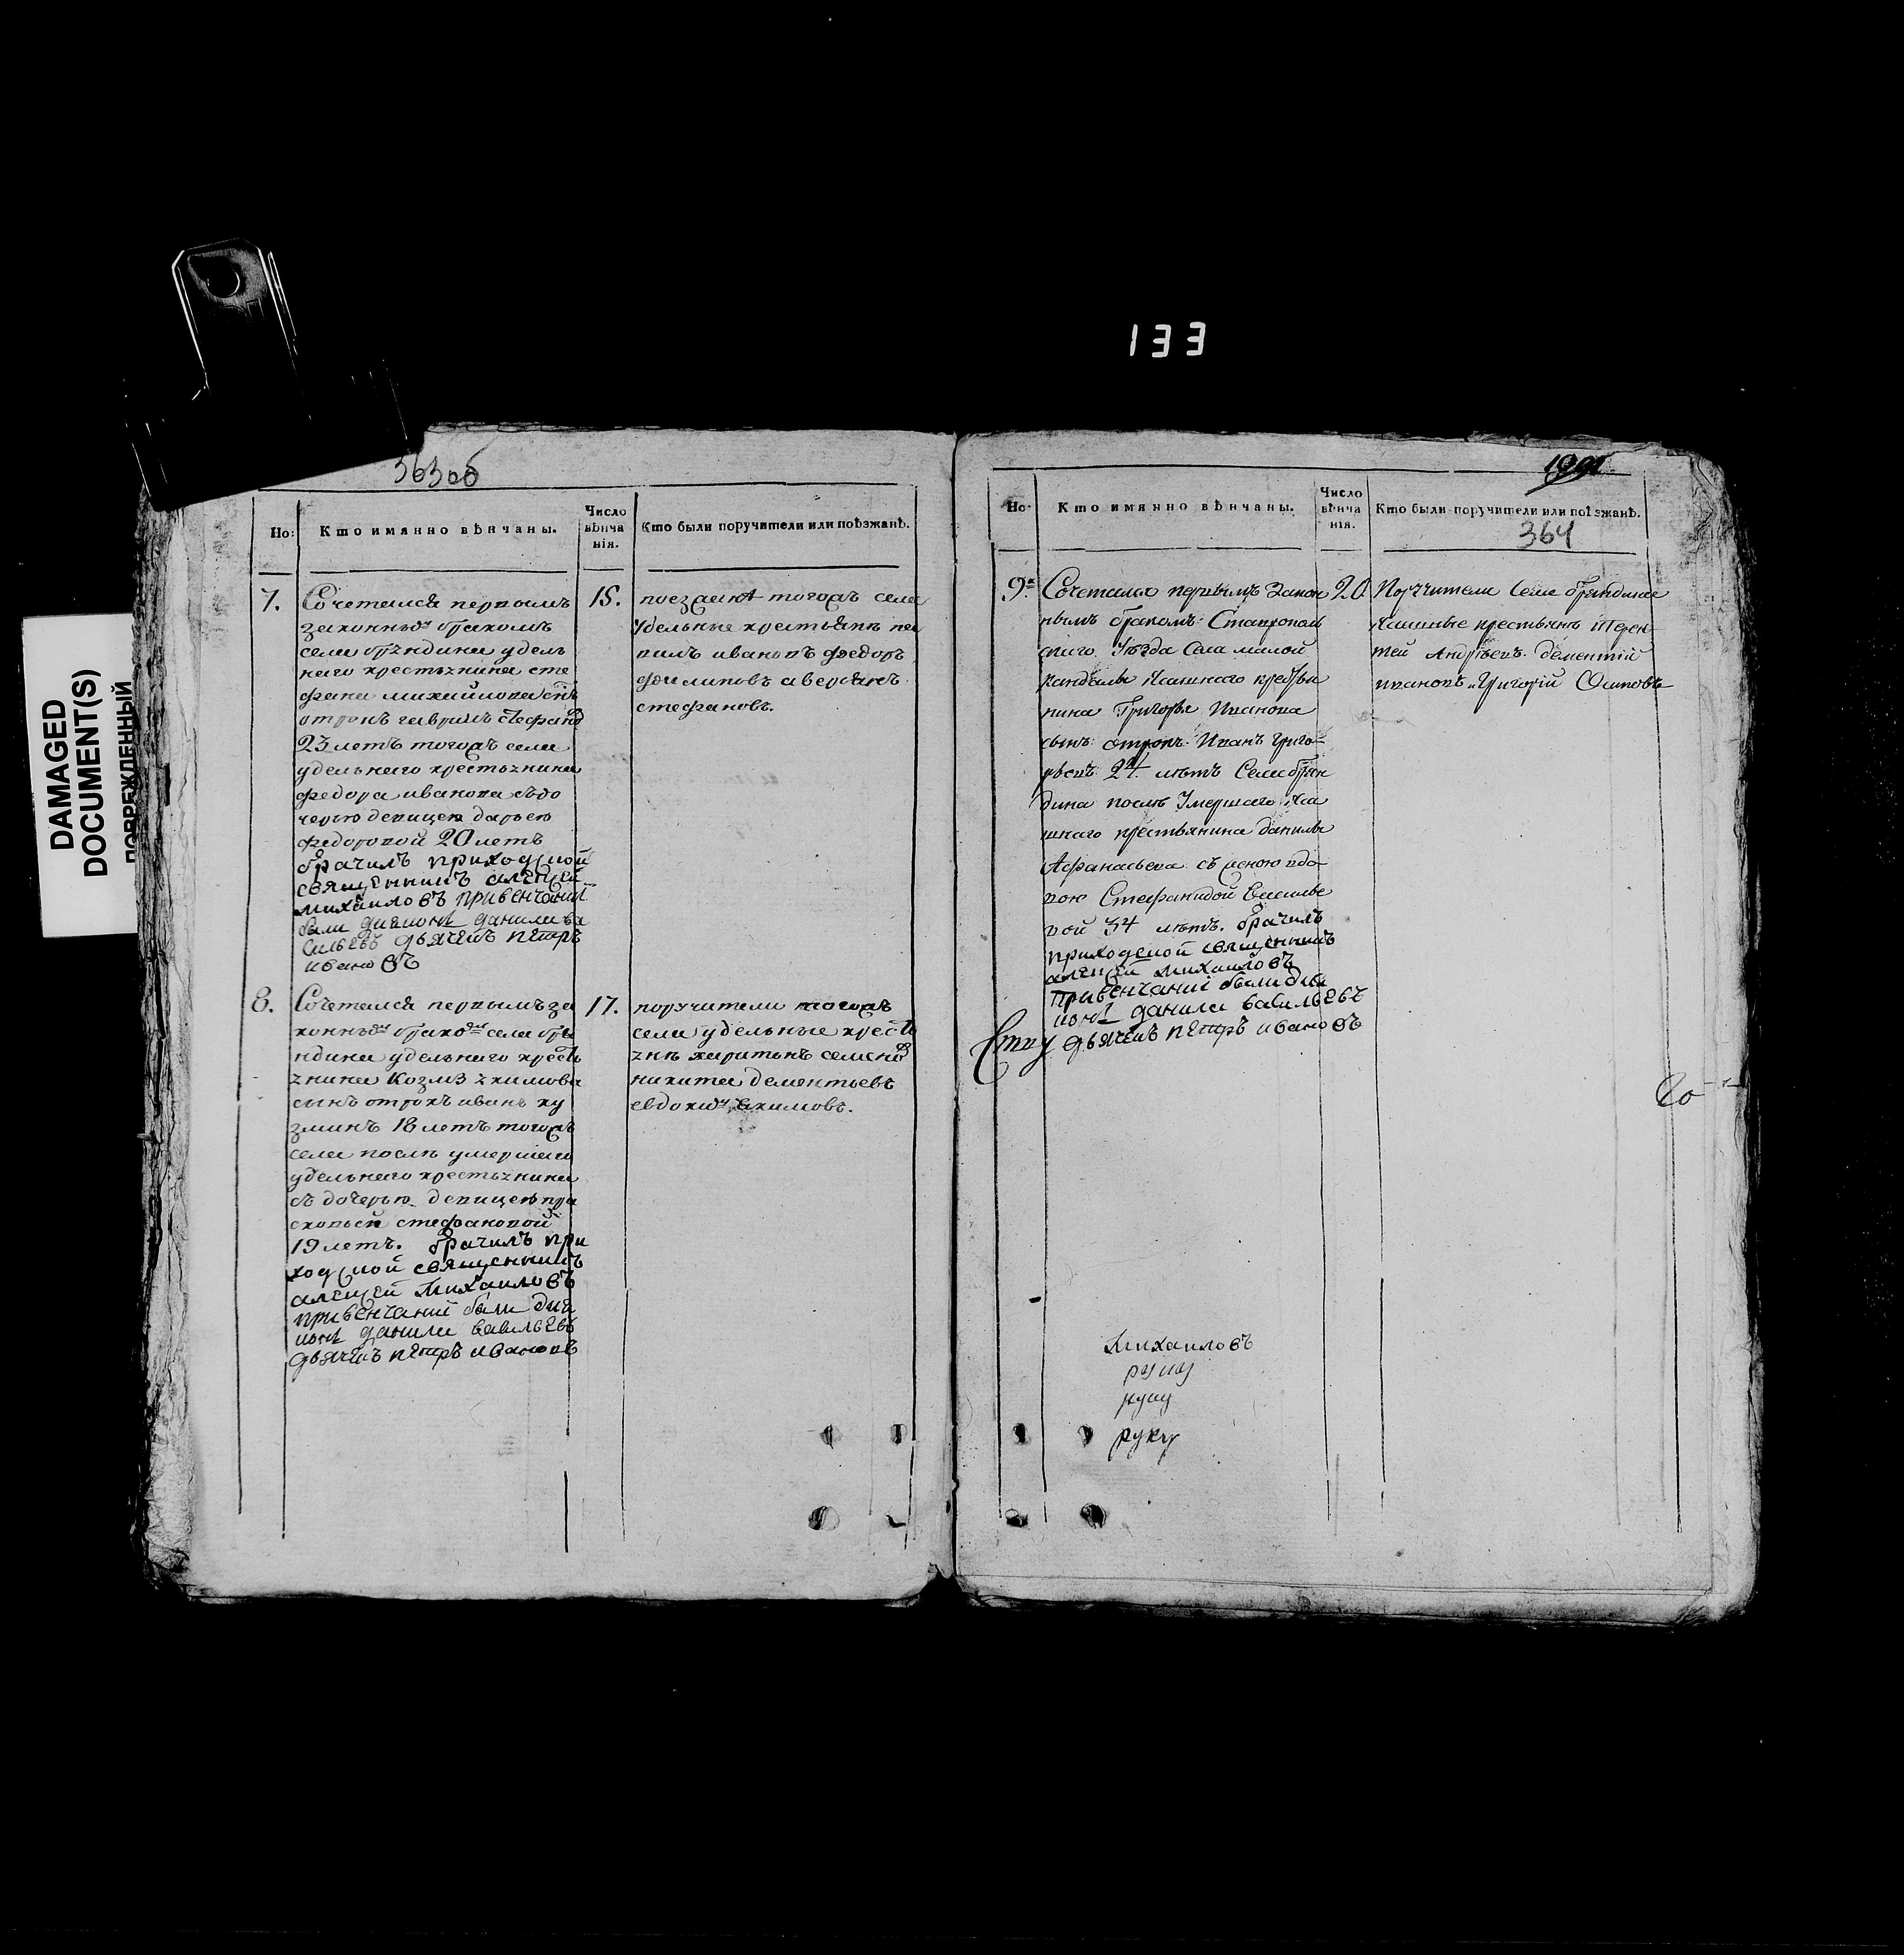 133
DAMAGED
DOCUMENT(S)
ПОВРЕЖДЕННЫЙ
363об
Но:
Кто имянно вѣнчаны.
Число вѣнчанія.
Кто были поручители или поѣзжанѣ.
7.
Сочетался первымъ
законнымъ бракомъ
села брʌндина удель
наго крестьянина сте
фана михайлова снъ
отрокъ гаврилъ стефановъ
23 летъ тогожъ села
удельнаго крестьянина
федора иванова съ до
черью девицею дарьею
федоровой 20 летъ
брачилъ приходской
священникъ алеѯей
михайловъ при венчаниї
были дияконъ данила ва
сильевъ дьячекъ петръ
ивановъ
15.
поезжанѣ тогожъ села
удельные крестьянѣ па
вилъ ивановъ федоръ
филиповъ аверьянъ
стефановъ.
8.
Сочетался первымъ за
коннымъ бракомъ села бря
ндина удельнаго кресть
янина козмы якимова
сынъ отрокъ иванъ ку
зминъ 18 летъ тогожъ
села послѣ умершаго
удельнаго крестьянина
съ дочерью девицею пра
сковьей стефановой
19 летъ. брачилъ при
ходской священникъ
алеѯей михайловъ
при венчаниї были дия
конъ данила васильевъ
дьячекъ петръ ивановъ
17.
поручители тогожъ
села удельные кресть
янѣ харитонъ семеновъ
никита дементьевъ
евдокимъ якимовъ.
364
Но:
Кто имянно вѣнчаны.
Число вѣнчанія.
Кто были поручители или поѣзжанѣ.
9.
Сочетался первымъ Закон
нымъ бракомъ Ставрополь
скаго Уѣзда Села малой
кандалы Ясашнаго крестья
нина Григорья Иванова
сынъ отрокъ Иванъ Григо
рьевъ 24 лѣтъ Села брян
дина послѣ Умершаго Яса
шнаго крестьянина данилы
Афанасьева съ женою вдо
вою Стефанидой Василье
вой 34 лѣтъ. брачилъ
приходской священникъ
алеѯей михайловъ
при венчаниї были дия
конъ данила васильевъ
дьячекъ петръ ивановъ
20.
Поручители Села брандина
Ясашные крестьянѣ терен
тей Андрѣевъ дементій
ивановъ Григорій Осиповъ
михаиловъ
руку
руку
руку